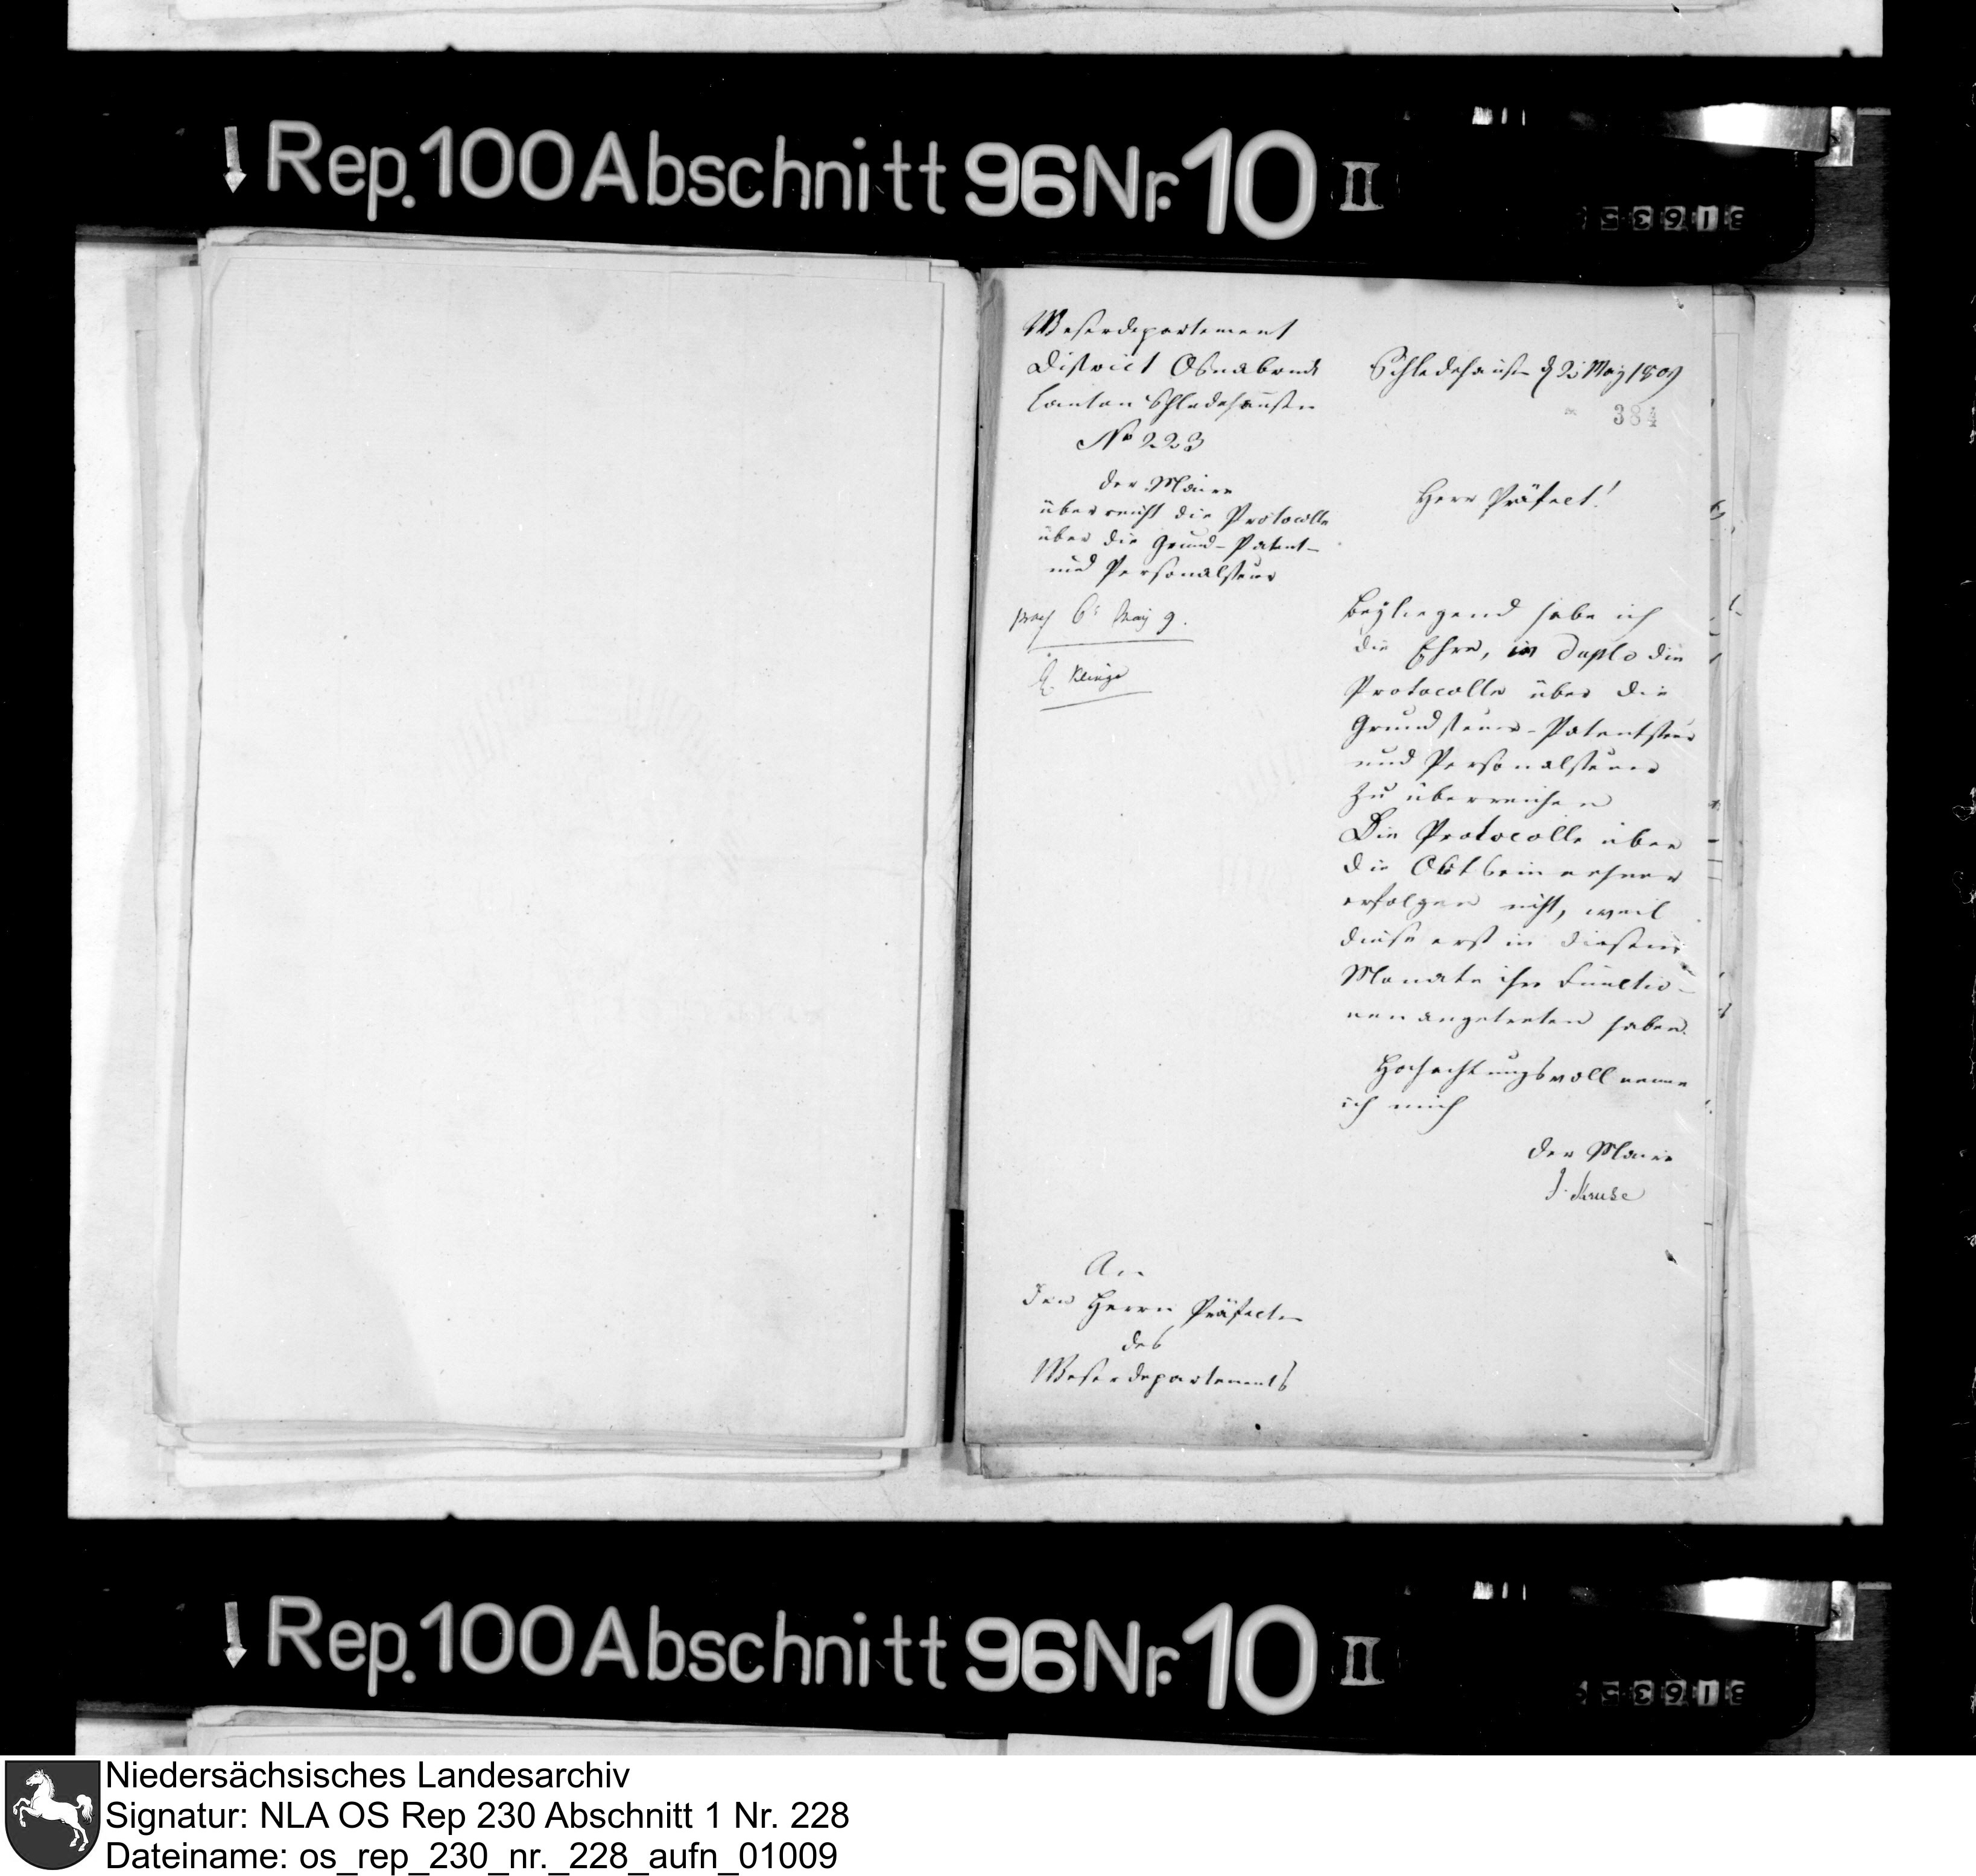 Rep. 100 Abschnitt 96 Nr. 10 II
Weserdepartement
District Osnabrück
Canton Schledehausen
No 223
der Maire
überreicht die Protocolle
über die Grund-Patent-
und Personalsteuer
May 9.
Schledehausen May 1809
384
Herr Präfect!
Beyliegend habe ich
die Ehre, in duplo die
Protocolle über die
Grundsteuer-Patentsteuer
und Personalsteuer
zu überreichen
Die Protocolle über
die
erfolgen nicht, weil
diese erst in diesem
Monate ihre Functio-
nen angetreten haben.
Hochachtungsvoll nenne
ich mich
der Maire
J. Kruse
An
den Herrn Präfecten
des
Weserdepartements
Rep. 100 Abschnitt 96 Nr. 10 II
Niedersächsisches Landesarchiv
Signatur: NLA OS Rep 230 Abschnitt 1 Nr. 228
Dateiname: os_rep_230_nr._228_aufn_01009